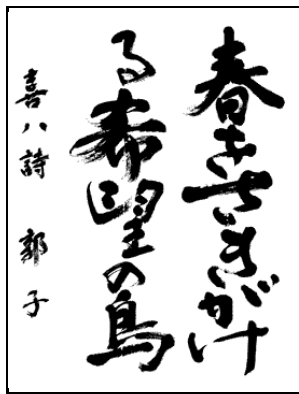 春をさきがけ
る希望の鳥
喜八詩 郭子